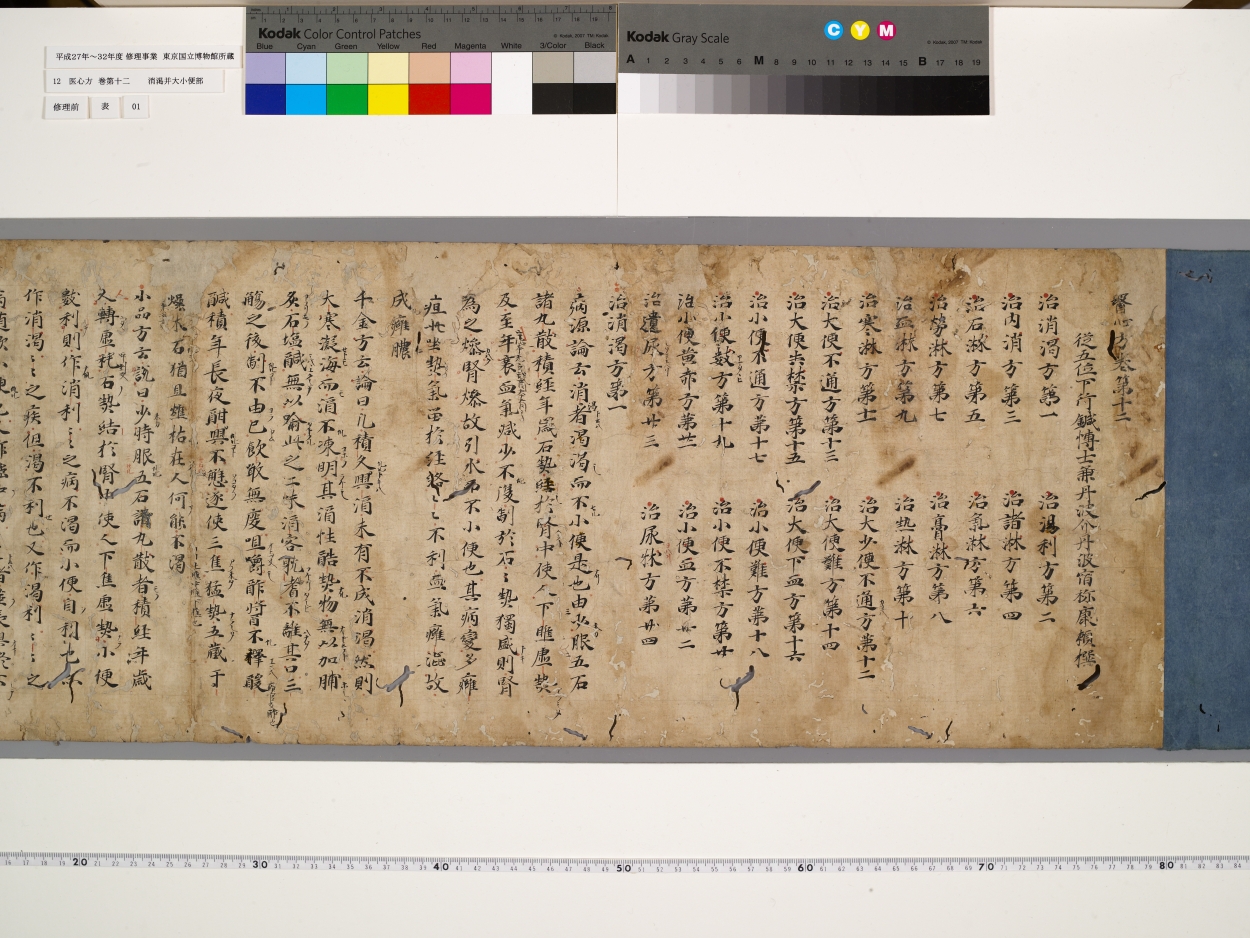 平成27年～32年度 修理事業 東京国立博物館所蔵
12 医心方 巻第十二 消渇并大小便部
修理前 表 01
Kodak Color Control Patches
Blue Cyan Green Yellow Red Magenta White 3/Color Black
Kodak Gray Scale
C Y M
A 1 2 3 4 5 6 M 8 9 10 11 12 13 14 15 B 17 18 19
醫心方卷第十二
從五位下行鍼博士兼丹波介丹波宿祢康頼撰
治消渴方第一 治渴利方第二
治内消方第三 治諸淋方第四
治石淋方第五 治氣淋方第六
治勞淋方第七 治膏淋方第八
治血淋方第九 治熱淋方第十
治寒淋方第十一 治大少便不通方第十二
治大便不通方第十三 治大便難方第十四
治大便失禁方第十五 治大便下血方第十六
治小便不通方第十七 治小便難方第十八
治小便數方第十九 治小便不禁方第廿
治小便黄赤方第廿一 治小便血方第廿二
治遺尿方第廿三 治尿牀方第廿四
治消渴方第一
病源論云消者渴渴而不小便是也由少服五石
諸丸散積經年歲石勢結於腎中使人下膲虛熱
及至年衰血氣減少不復制於石々勢獨盛則腎
為之燥腎燥故引水而不小便也其病變多癰
疽此坐熱氣留於經絡々々不利血氣癰澁故
成癰膿
千金方云論曰凡積久興消未有不成消渴然則
大寒凝海而消不凍明其消性酷熱物無以加脯
炙石塩鹹無以喻此之二味消客躭者不離其口三
觴之後制不由已飲噉無度咀嚼酢醤不擇酸
鹹積年長夜酣興不懈遂使三焦猛熱五藏干
燥木石猶且燋枯在人何能不渴
小品方云說曰少時服五石諸丸散者積經年歲
人轉虛耗石勢結於腎中使人下焦虛熱小便
數利則作消利々々之病不渴而小便自利也亦
作消渴々々之疾但渴不利也又作渴利々々之
20 30 40 50 60 70 80